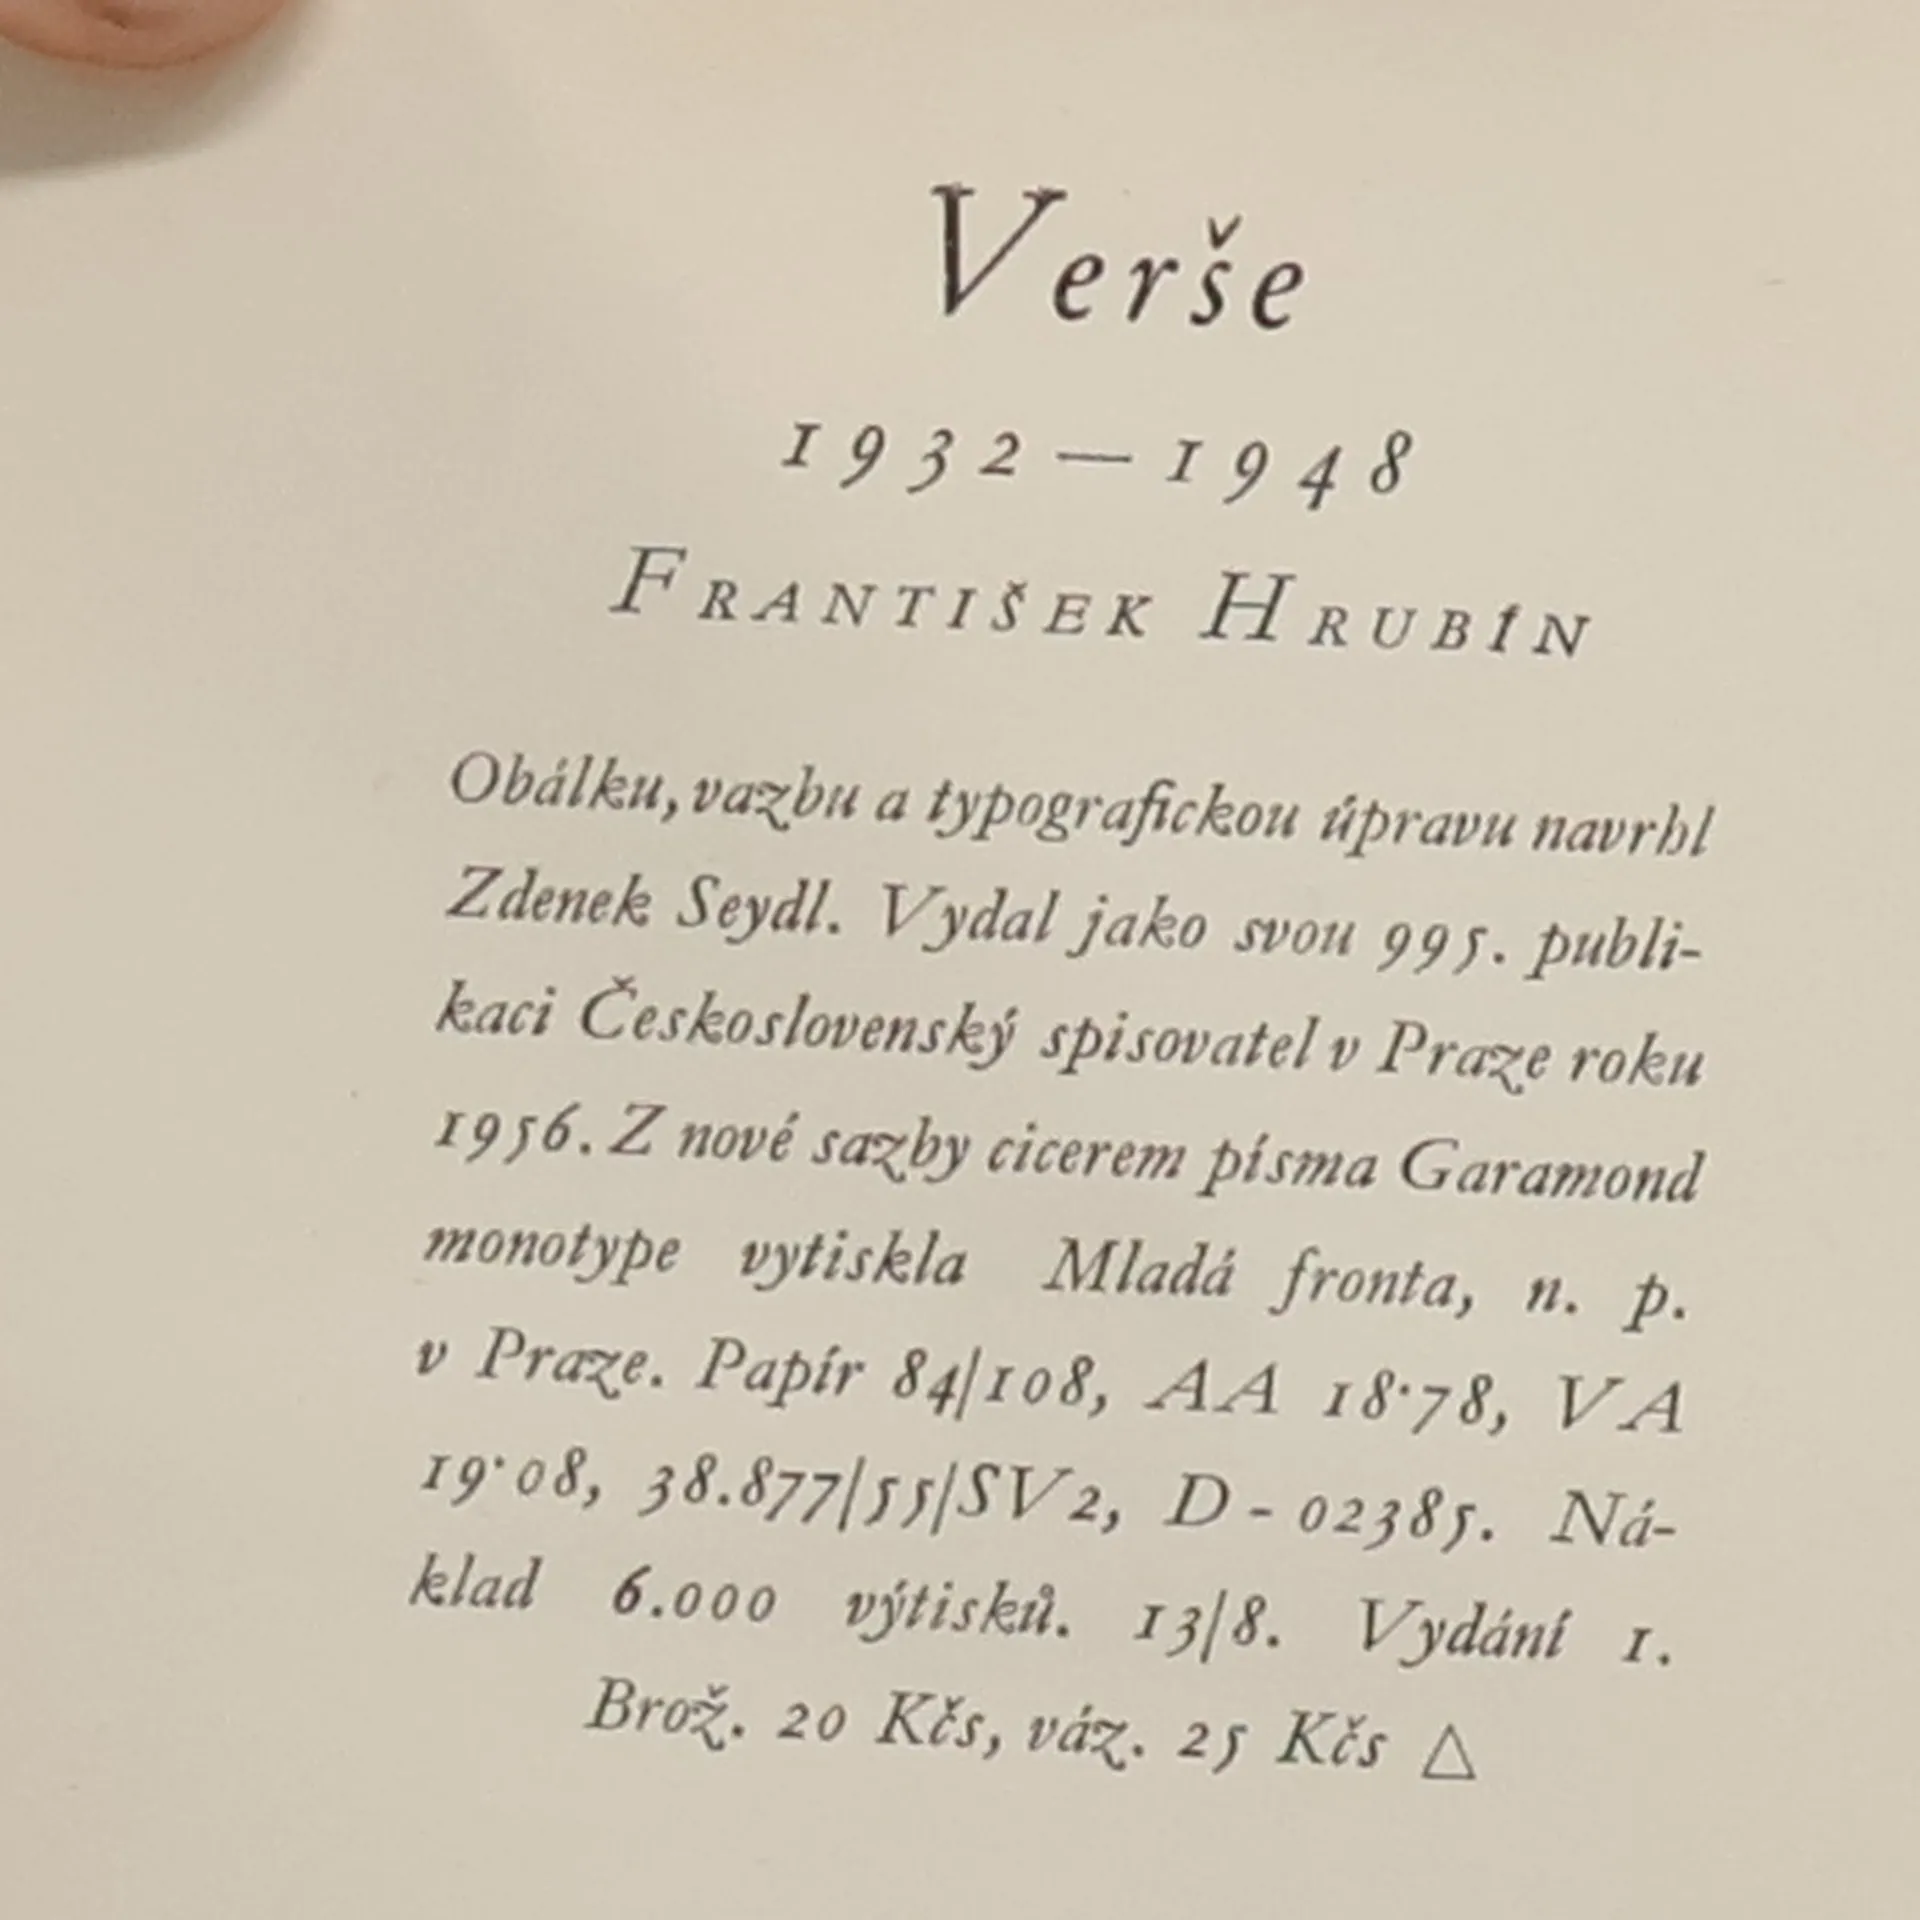 Verše
1932—1948
FRANTIŠEK HRUBÍN
Obálku, vazbu a typografickou úpravu navrhl
Zdenek Seydl. Vydal jako svou 995. publi-
kaci Československý spisovatel v Praze roku
1956. Z nové sazby cicerem písma Garamond
monotype vytiskla Mladá fronta, n. p.
v Praze. Papír 84/108, AA 18·78, VA
19·08, 38.877/55/SV2, D - 02385. Ná-
klad 6.000 výtisků. 13/8. Vydání 1.
Brož. 20 Kčs, váz. 25 Kčs △